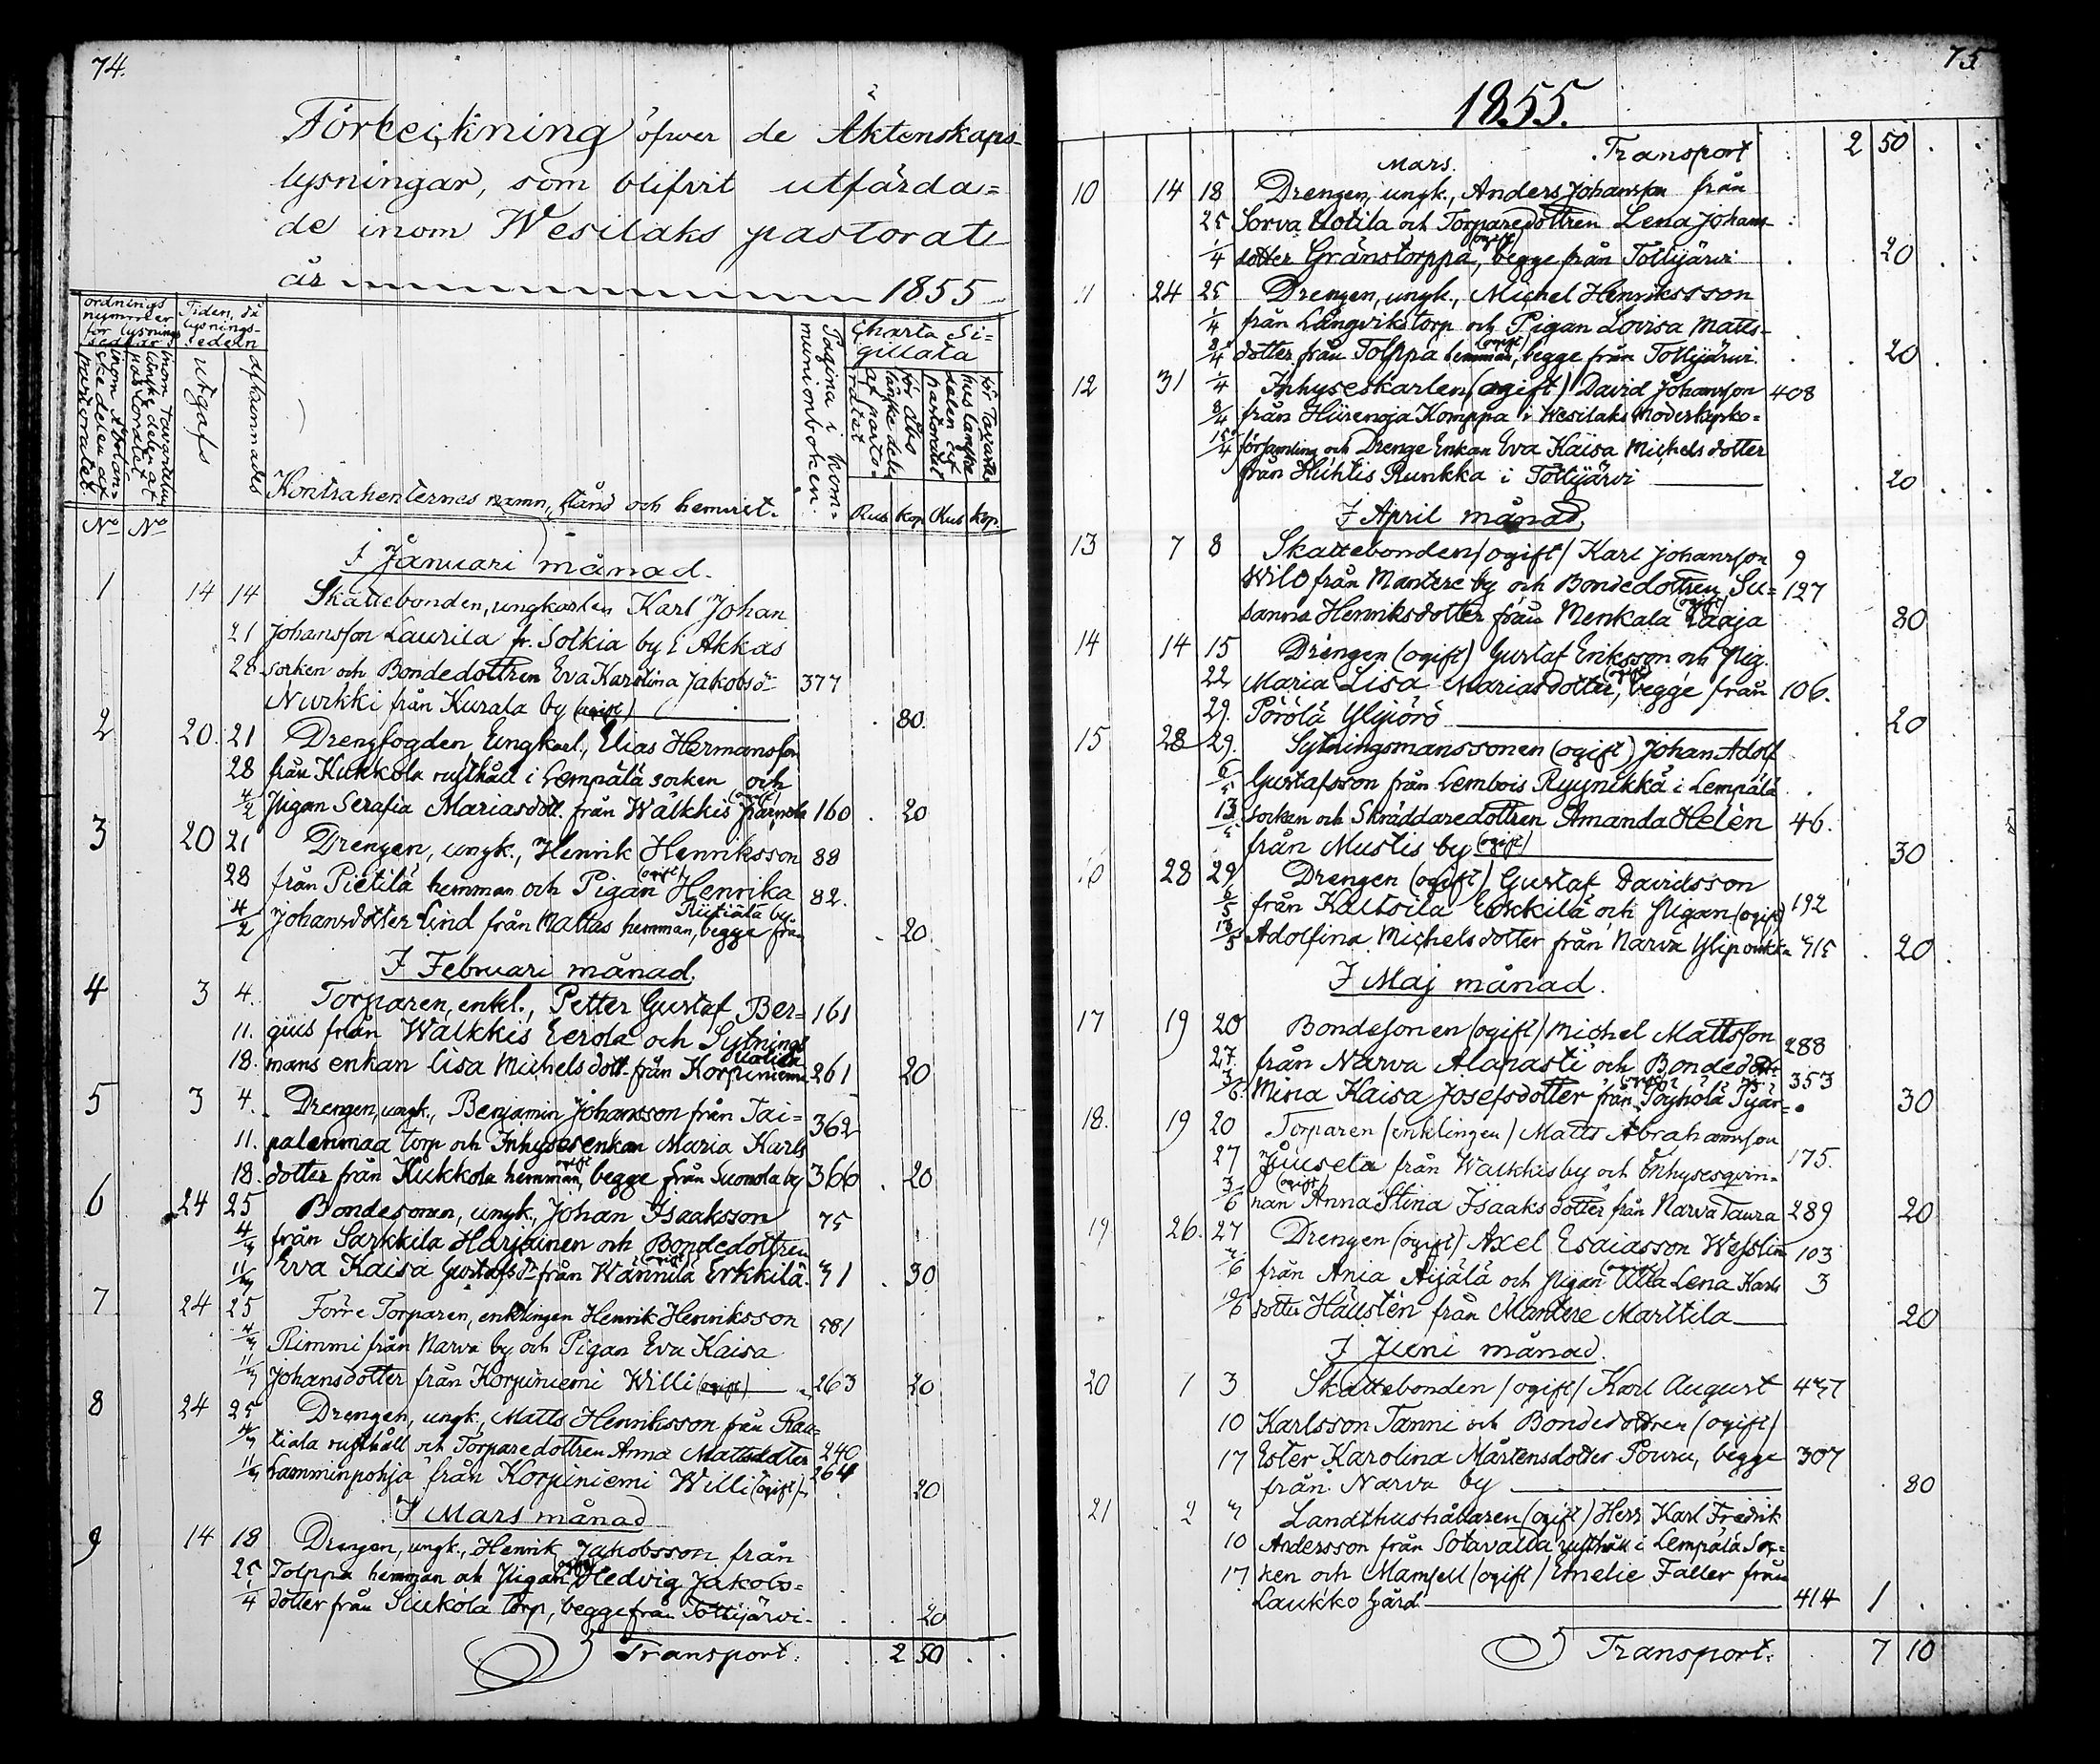 74.
Förteckning öfwer de Äktenskaps-
lysningar, som blifvit utfärda=
de inom Wesilaks pastorat
år 1855
ordnings
nummer
för lysnings
sedlar
Tiden, då
lysnings-
sedeln
utgafs
afkunnades
Kontrahenternes namn, stånd och hemvist.
Pagina i kom=
munionboken.
Charta Si=
gillata
Rub Kop Rub Kop.
No No
I Januari månad.
1 14 14 Skattebonden, ungkarlen Karl Johan
21 Johansson Laurila fr. Solkia by i Akkas
28 socken och Bondedottren Eva Karolina Jakobsdr 377
Nurkki från Kurala by (ogift) 80.
2 20. 21 Drengfogden, Ungkarl., Elias Hermansson
28 från Kukkola rusthåll i Lempälä socken och
4/2 Pigan Serafia Mariasdott. från Wälkkis (ogift) 160 20
3 20 21 Drengen, ungk., Henrik Henriksson 88
28 från Pietilä hemman och Pigan (ogift) Henrika 82.
4/2 Johansdotter Lind från Mattas hemman, begge från Riitiälä by. 20
I Februari månad.
4 3 4. Torparen, enkl., Petter Gustaf Ber= 161
11. gius från Wälkkis Eerola och Sytnings
18. mans enkan Lisa Michelsdott. från Korpiniemi 261 20
5 3 4. Drengen, ungk., Benjamin Johansson från Tai= 362
11. palenmaa torp och Inhysesenkan Maria Karls
18. dotter från Kukkola hemman, begge från Suomela by 366 20
6 24 25 Bondesonen, ungk., Johan Isaaksson 75
4/3 från Sarkkila Harjuinen och Bondedottren
11/3 Eva Kaisa Gustafsdr från Wännilä (ogift) Erkkilä. 31 30
7 24 25 Förre Torparen, enklingen Henrik Henriksson 581
4/3 Rimmi från Narva by och Pigan Eva Kaisa
11/3 Johansdotter från Korpiniemi Willi (ogift) 263 20
8 24 25 Drengen, ungk., Matts Henriksson från Raa-
4/3 tiala rusthåll och Torparedottren Anna Mattsdotter 240
11/3 Lamminpohja från Korpiniemi Willi (ogift) 264 20
I Mars månad
9 14 18 Drengen, ungk., Henrik Jakobsson från
25 Tolppa hemman och Pigan (ogift) Hedvig Jakobs=
1/4 dotter från Siukola torp, begge från Tottijärvi. 20
Transport. 2 50
75
1855.
Mars. Transport 2 50
10 14 18 Drengen, ungk., Anders Johansson från
25 Sorva Uotila och Torparedottren Lena Johans-
1/4 dotter Gränstorppa (ogift), begge från Tottijärvi 20
11 24 25 Drengen, ungk., Michel Henriksson
1/4 från Långvikstorp och Pigan Lovisa Matts-
8/4 dotter från Tolppa hemman (ogift), begge från Tottijärvi. 20
12 31 1/4 Inhyseskarlen (ogift) David Johansson 408
8/4 från Hiirenoja Komppa i Wesilaks Moderkyrko=
15/4 församling och Drenge Enkan Eva Kaisa Michelsdotter
från Huhtis Runkka i Tottijärvi 20
I April månad.
13 7 8 Skattebonden (ogift) Karl Johansson 9
Wilo från Mantere by och Bondedottren Su= 127
sanna Henriksdotter från Menkala (ogift) Laaja 80
14 14 15 Drengen (ogift) Gustaf Eriksson och Pig.
22 Maria Lisa Mariasdotter (ogift), begge från 106.
29. Pörölä Ylijörö 20
15 28 29. Sytningsmanssonen (ogift) Johan Adolf
6/5 Gustafsson från Lembois Ryynikkä i Lempälä
13/5 Socken och Skräddaredottren Amanda Helén 46.
från Mustis by (ogift) 30
16 28 29 Drengen (ogift) Gustaf Davidsson
6/5 från Kaltsila Erkkilä och Pigan (ogift) 192
13/5 Adolfina Michelsdotter från Narva 315 20
I Maj månad.
17 19 20 Bondesonen (ogift) Michel Mattsson 288
27 från Narva Alapasti och Bondedottr. 353
3/6. Mina Kaisa Josefsdotter från (ogift) Pöyhölä 30
18. 19 20 Torparen (enklingen) Matts Abrahamsson
27 Juusela från Walkkis by och Inhysesqvin- 175.
3/6 nan (ogift) Anna Stina Isaaksdotter från Narva Taura 289 20
19 26. 27 Drengen (ogift) Axel Esaiasson Wesslin 103
3/6 från Ania Äijälä och Pigan (ogift) Ulla Lena Karls 3
10/6 dotter Häustén från Mantere Marttila 20
I Juni månad.
20 1 3 Skattebonden (ogift) Karl August 437
10 Karlsson Tanni och Bondedottren (ogift)
17 Ester Karolina Mårtensdotter Pouru, begge 307
från Narva by 80
21 2 3 Landthushållaren (ogift) Herr Karl Fredrik
10 Andersson från Sotavalda rusthåll i Lempälä Soc=
17 ken och Mamsell (ogift) Emelie Faller från
Laukko Gård 414 1
Transport. 7 10